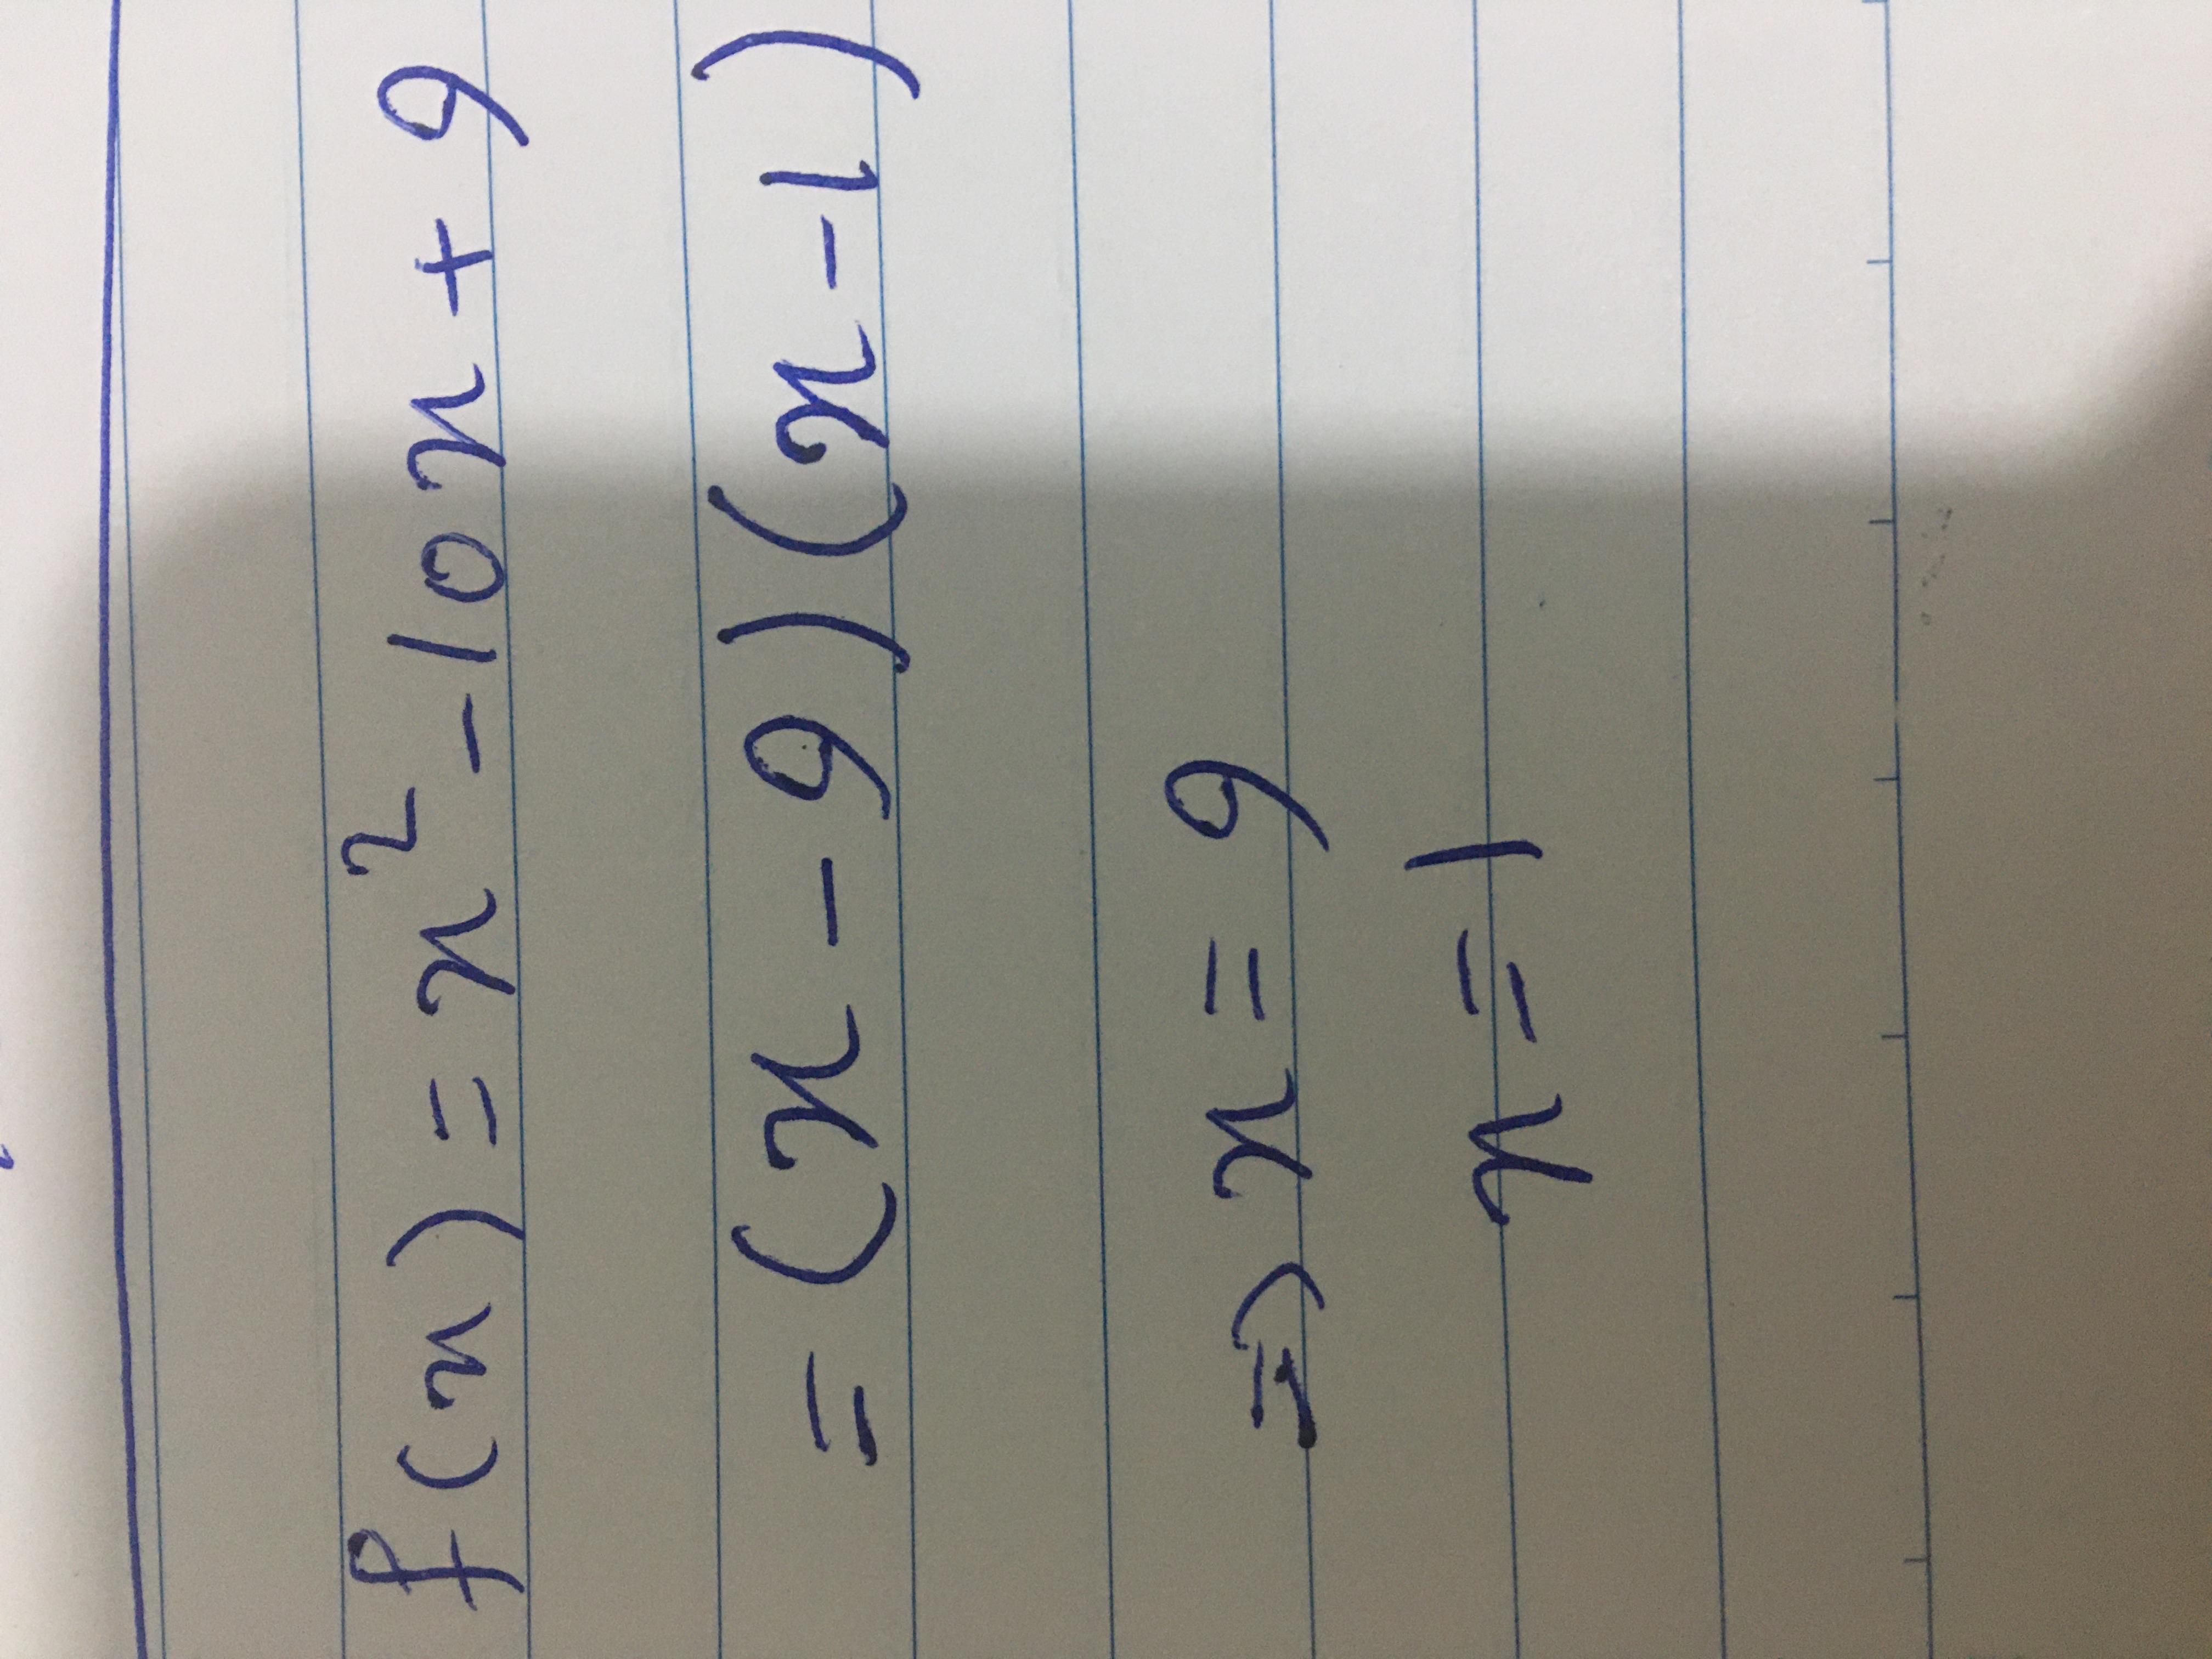 f(x) = x² - 10x + 9
= (x - 9) (x - 1)
⇒ x = 9
x = 1